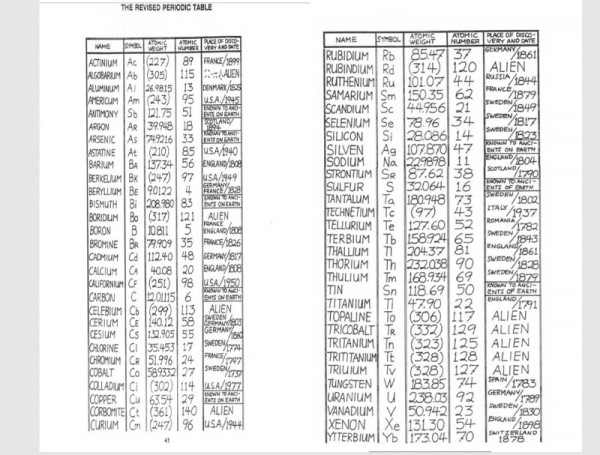 THE REVISED PERIODIC TABLE
NAME SYMBOL ATOMIC WEIGHT ATOMIC NUMBER PLACE OF DISCO-VERY AND DATE
ACTINIUM Ac (227) 89 FRANCE/1899
ALGOBARIUM Ab (305) 115 ALIEN
ALUMINUM 26.9815 13 DENMARK/1825
AMERICUM Am (243) 95 U.S.A./1945
ANTIMONY Sb 121.75 51 KNOWN TO ANCI-ENTS ON EARTH
ARGON AR 39.948 18 SCOTLAND/1894
ARSENIC As 74.9216 33 KNOWN TO ANCI-ENTS ON EARTH
ASTATINE At (210) 85 U.S.A/1940
BARIUM BA 137.34 56 ENGLAND/1808
BERKELIUM Bk (247) 97 U.S.A/1949
BERYLLIUM BE 9.0122 4 GERMANY/FRANCE/1828
BISMUTH Bi 208.980 83 KNOWN TO ANCI-ENTS ON EARTH
BORIDIUM Bo (317) 121 ALIEN
BORON B 10.811 5 FRANCE/ENGLAND/1808
BROMINE BR 79.909 35 FRANCE/1826
CADMIUM Cd 112.40 48 GERMANY/1817
CALCIUM CA 40.08 20 ENGLAND/1808
CALIFORNIUM CF (251) 98 U.S.A/1950
CARBON C 12.01115 6 KNOWN TO ANCI-ENTS ON EARTH
CELEBIUM Cb (299) 113 ALIEN
CERIUM CE 140.12 58 SWEDEN/GERMANY/1803
CESIUM Cs 132.905 55 GERMANY/
CHLORINE Cl 35.453 17 SWEDEN/1774
CHROMIUM CR 51.996 24 FRANCE/1797
COBALT Co 58.9332 27 SWEDEN/1737
COLLADIUM Ci (302) 114 U.S.A/1977
COPPER Cu 63.54 29 KNOWN TO ANCI-ENTS ON EARTH
CORBOMITE Ct (361) 140 ALIEN
CURIUM Cm (247) 96 U.S.A/1944
41
NAME SYMBOL ATOMIC WEIGHT ATOMIC NUMBER PLACE OF DISCO-VERY AND DATE
RUBIDIUM Rb 85.47 37 GERMANY/1861
RUBINDIUM Rd (314) 120 ALIEN
RUTHENIUM Ru 101.07 44 RUSSIA/1844
SAMARIUM Sm 150.35 62 FRANCE/1879
SCANDIUM Sc 44.956 21 SWEDEN/1849
SELENIUM Se 78.96 34 SWEDEN/1817
SILICON Si 28.086 14 SWEDEN/1823
SILVEN Ag 107.870 47 KNOWN TO ANCI-ENTS ON EARTH
SODIUM Na 22.9898 11 ENGLAND/1804
STRONTIUM SR 87.62 38 SCOTLAND/1790
SULFUR S 32.064 16 KNOWN TO ANCI-ENTS OF EARTH
TANTALUM Ta 180.948 73 SWEDEN/1802
TECHNETIUM Tc (97) 43 ITALY/1937
TELLURIUM Te 127.60 52 ROMANIA/1782
TERBIUM Tb 158.924 65 SWEDEN/1843
THALLIUM Tl 204.37 81 ENGLAND/1861
THORIUM Th 232.038 90 SWEDEN/1828
THULIUM Tm 168.934 69 SWEDEN/1879
TIN Sn 118.69 50 KNOWN TO ANCI-ENTS OF EARTH
TITANIUM Ti 47.90 22 ENGLAND/1791
TOPALINE To (306) 117 ALIEN
TRICOBALT TR (332) 129 ALIEN
TRITANIUM Tn (323) 125 ALIEN
TRITITANIUM Tt (328) 128 ALIEN
TRIUIUM Tv (328) 127 ALIEN
TUNGSTEN W 183.85 74 SPAIN/1783
URANIUM U 238.03 92 GERMANY/1789
VANADIUM V 50.942 23 SWEDEN/1830
XENON Xe 131.30 54 ENGLAND/1898
YTTERBIUM Yb 173.04 70 SWITZERLAND 1878